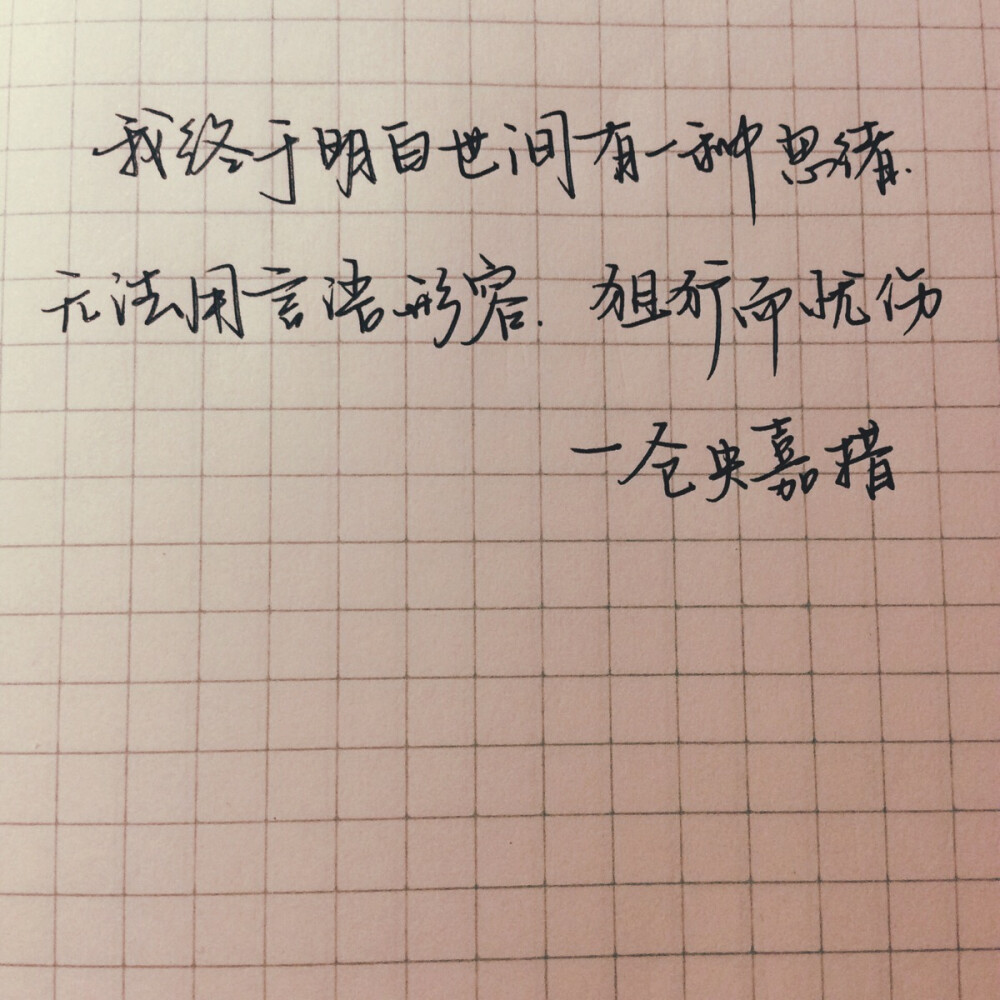 我终于明白世间有一种思绪.
无法用言语形容. 狙犷而忧伤
一仓央嘉措